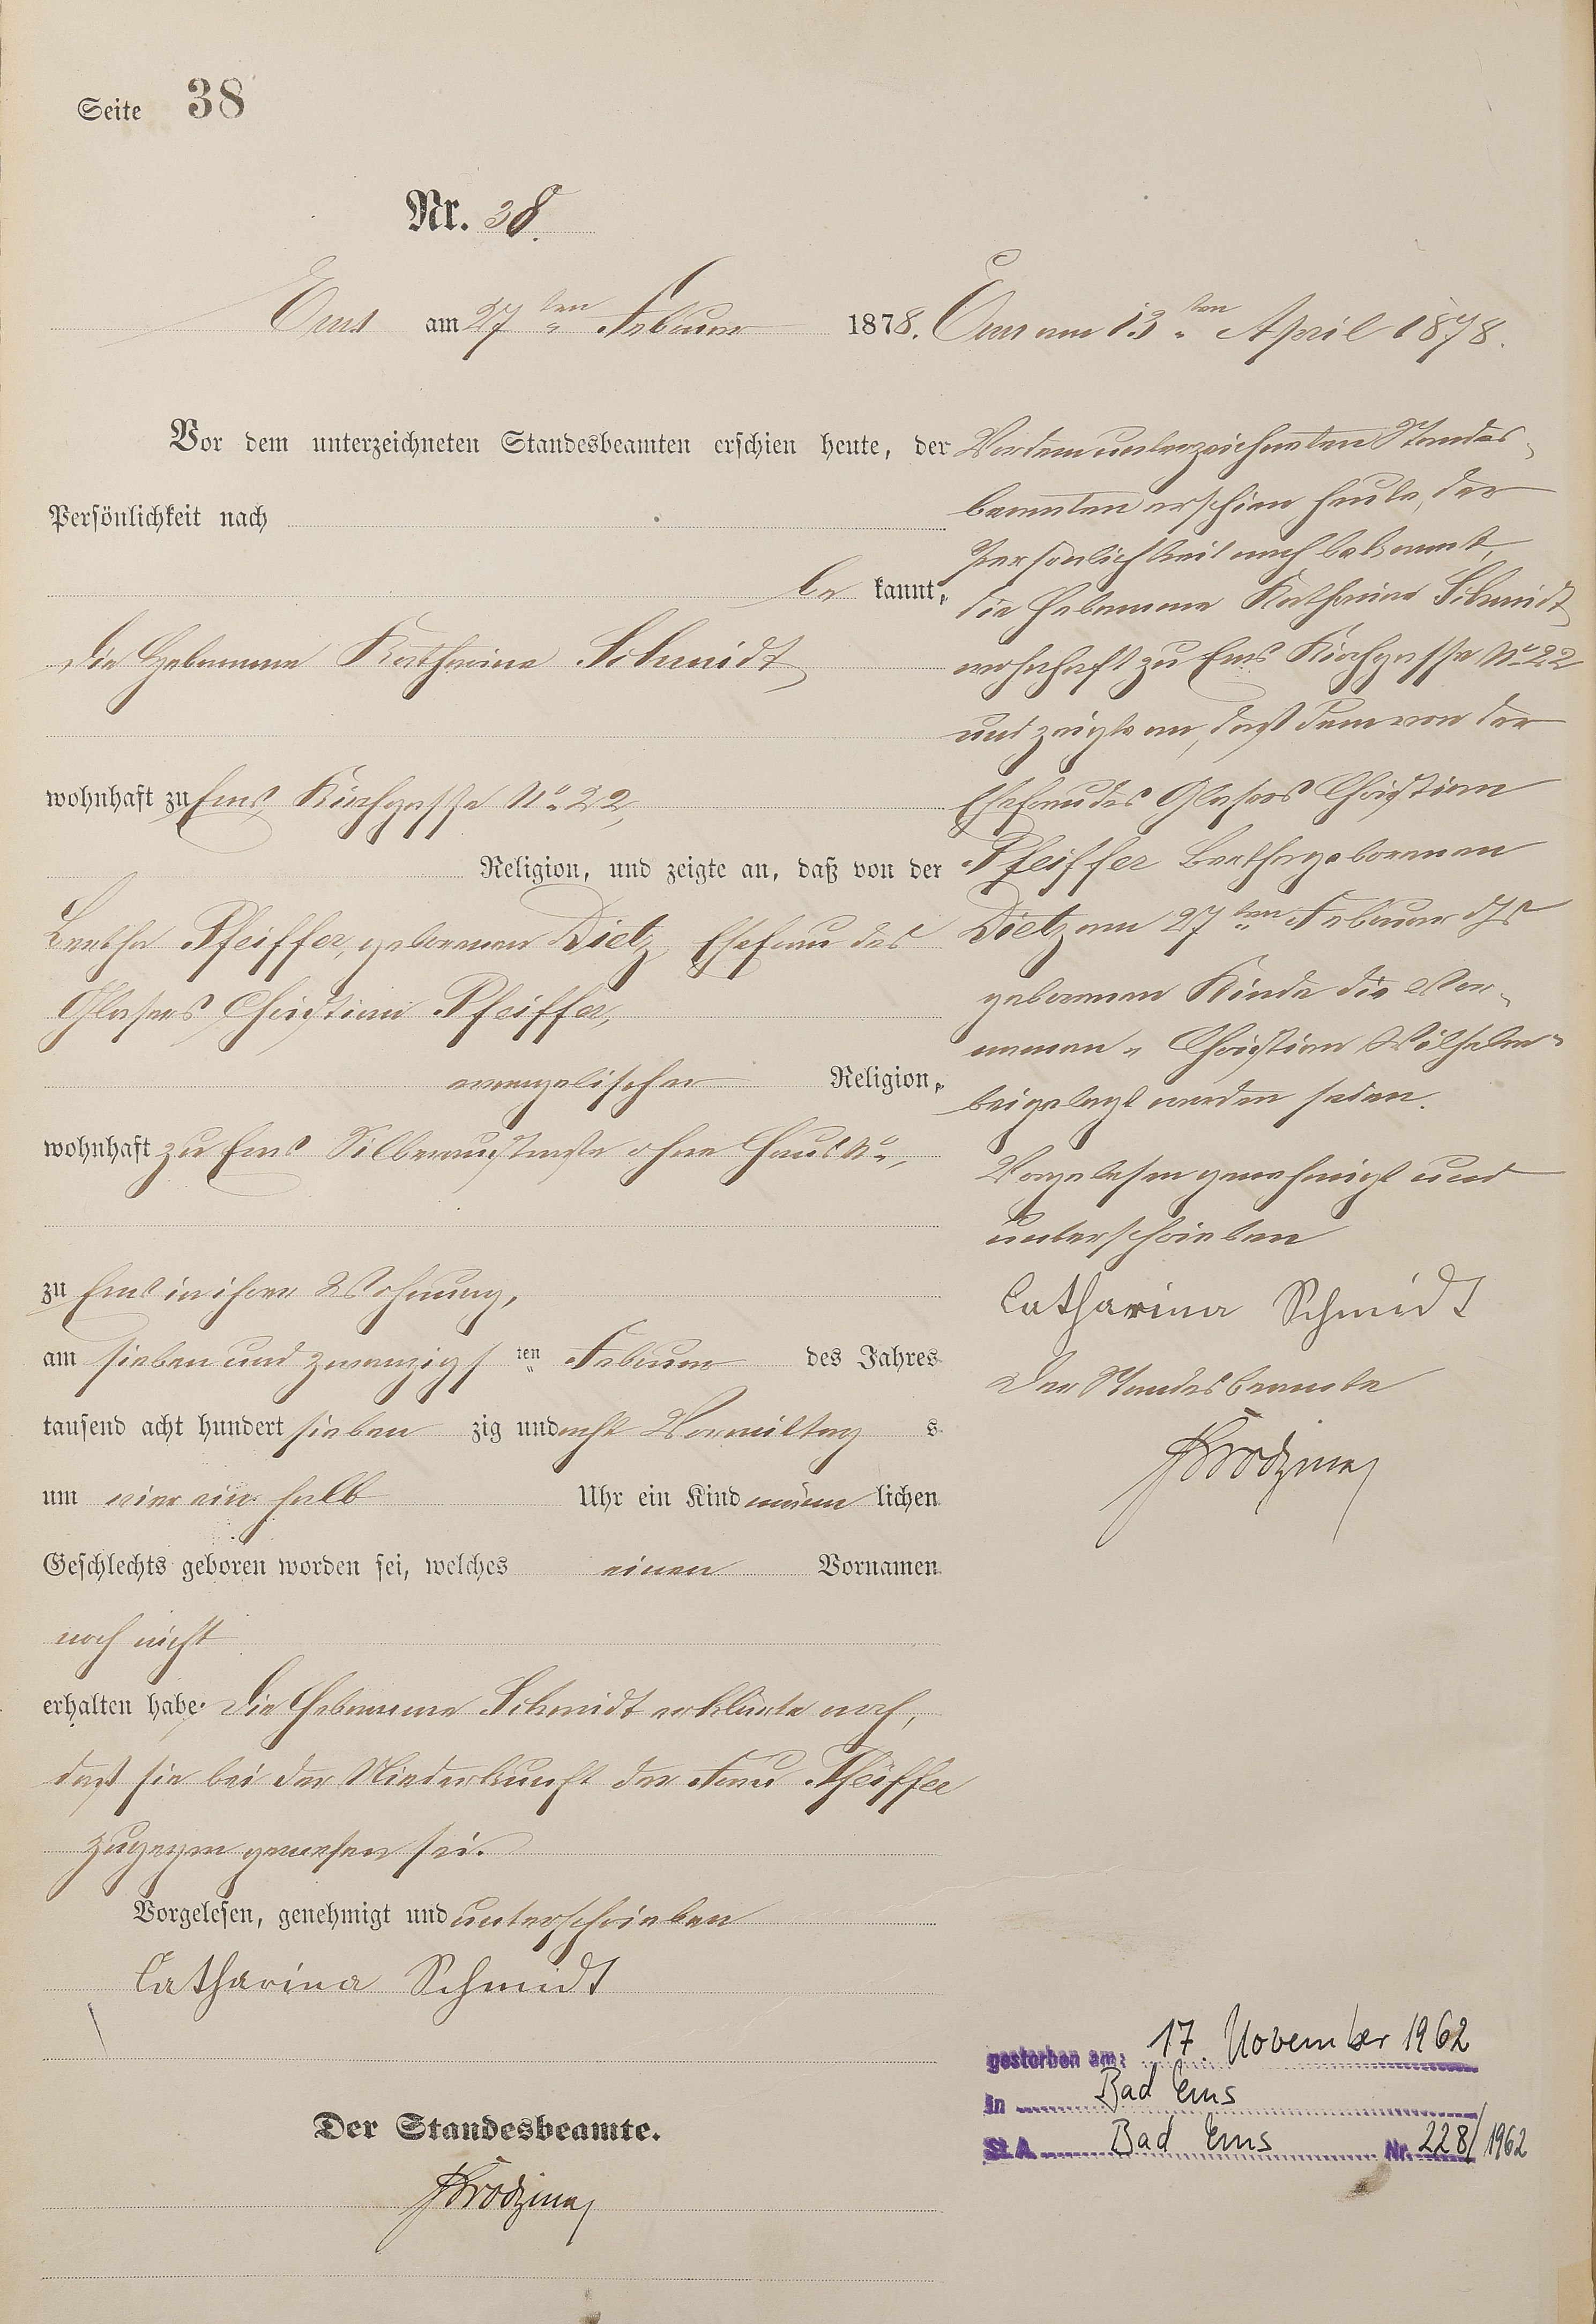 Seite 38
Nr. 38.
Ems am 27ten Februar 1878.
Vor dem unterzeichneten Standesbeamten erschien heute, der
Persönlichkeit nach
bekannt,
die Hebamme Katharina Schmidt
wohnhaft zu Ems Kirchgasse No 22,
Religion, und zeigte an, daß von der
Bertha Pfeiffer, geborenen Dietz, Ehefrau des
Glasers Christian Pfeiffer,
evangelischer Religion,
wohnhaft zu Ems Silberaustraße ohne Haus No,
zu Ems in ihrer Wohnung,
am sieben und zwanzigsten Februar des Jahres
tausend acht hundert sieben zig und acht Vormittags
um vier ein halb Uhr ein Kind männlichen
Geschlechts geboren worden sei, welches einen Vornamen
noch nicht
erhalten habe. Die Hebamme Schmidt erklärte noch,
daß sie bei der Niederkunft der Frau Pfeiffer
zugegen gewesen sei.
Vorgelesen, genehmigt und unterschrieben
Catharina Schmidt
Der Standesbeamte.
Ems am 13ten April 1878.
Vor dem unterzeichneten Standes-
beamten erschien heute, der
Persönlichkeit nach bekannt,
die Hebamme Katharina Schmidt
wohnhaft zu Ems Kirchgasse No 22
und zeigte an, daß dem von der
Ehefrau des Glasers Christian
Pfeiffer Bertha geborenen
Dietz am 27ten Februar ds Js
geborenen Kinde die Vor-
namen „Christian Wilhelm"
beigelegt worden seien.
Vorgelesen genehmigt und
unterschrieben
Catharina Schmidt
Der Standesbeamte
gestorben am: 17. November 1962
in Bad Ems
St. A. Bad Ems Nr. 228/1962